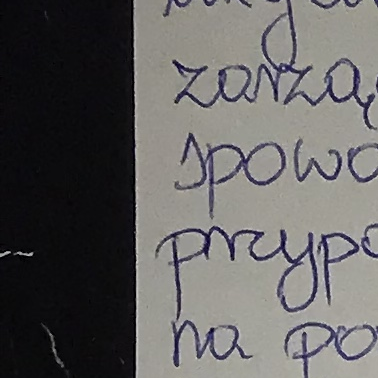 zarzą
spowo
przypo
na po